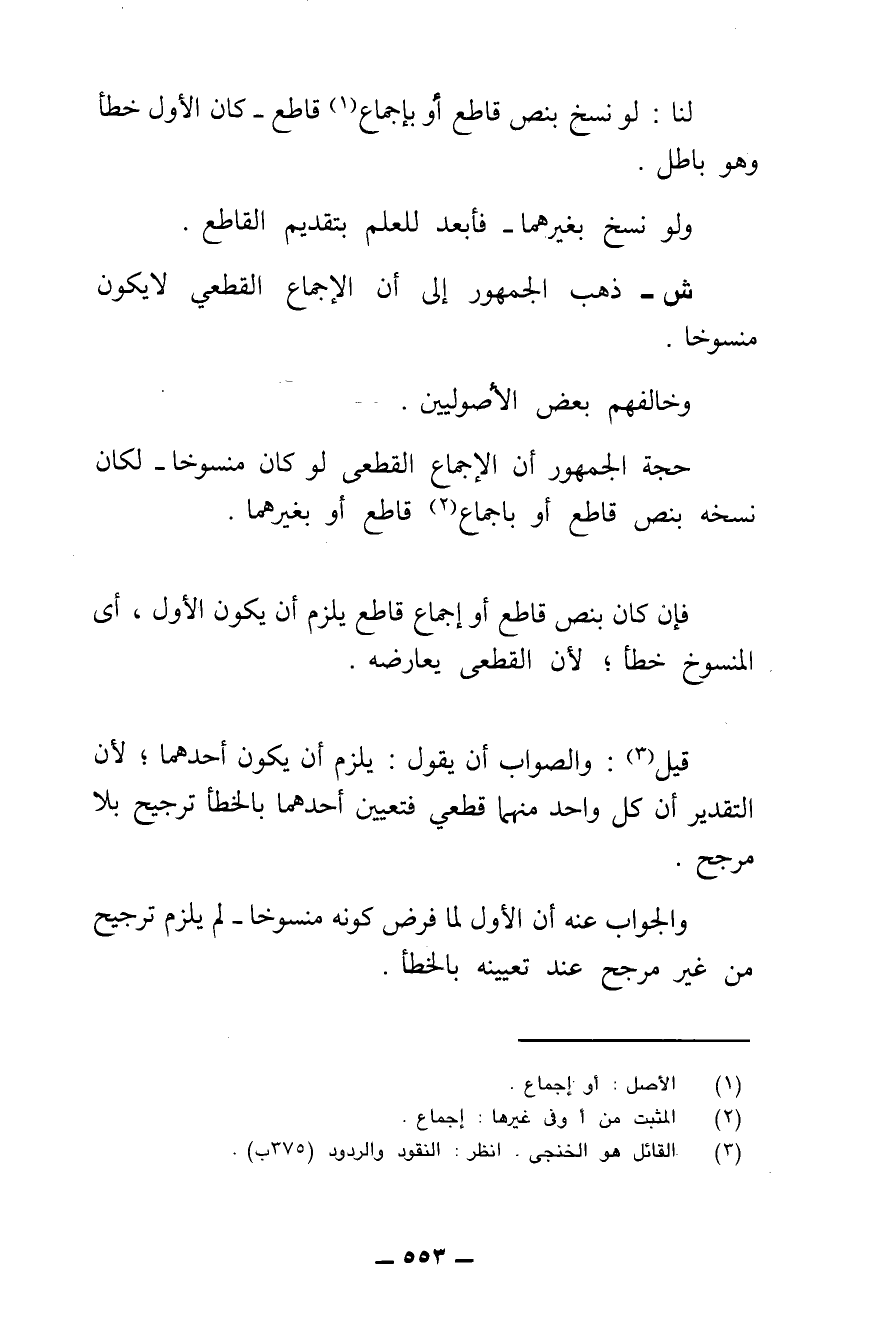 لنا : لو نسخ بنص قاطع أو بإجماع(١) قاطع ـ كان الأول خطأ
وهو باطل .
ولو نسخ بغيرهما ـ فأبعد للعلم بتقديم القاطع .
ش ـ ذهب الجمهور إلى أن الإجماع القطعي لايكون
منسوخا .
وخالفهم بعض الأصوليين .
حجة الجمهور أن الإجماع القطعى لو كان منسوخا ـ لكان
نسخه بنص قاطع أو باجماع(٢) قاطع أو بغيرهما .
فإن كان بنص قاطع أو إجماع قاطع يلزم أن يكون الأول ، أى
المنسوخ خطأ ؛ لأن القطعى يعارضه .
قيل(٣) : والصواب أن يقول : يلزم أن يكون أحدهما ؛ لأن
التقدير أن كل واحد منهما قطعي فتعيين أحدهما بالخطأ ترجيح بلا
مرجح .
والجواب عنه أن الأول لما فرض كونه منسوخا ـ لم يلزم ترجيح
من غير مرجح عند تعيينه بالخطأ .
(١) الأصل : أو إجماع .
(٢) المثبت من أ وفى غيرها : إجماع .
(٣) القائل هو الخنجى . انظر : النقود والردود (٣٧٥ب) .
ـ ٥٥٣ ـ